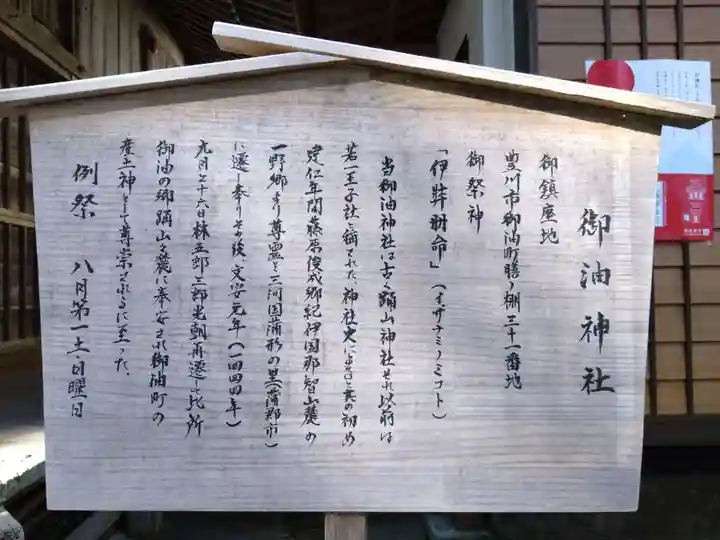 御油神社
御鎮座地
豊川市御油町膳ノ棚三十一番地
御祭神
「伊弉冊命」(イザナミノミコト)
当御油神社は古く踊山神社それ以前は
若一王子社と称された、神社史によると元の初め
建仁年間藤原俊成郷紀伊国那智山麓の
一野郷より尊霊を三河国蒲形の里(蒲郡市)
に遷し奉りその後、文安元年(一四四四年)
九月二十六日林五郎三郎光朝再遷し此所
御油の郷踊山之麓に奉安され御油町の
産土神として尊崇されるに至った。
例祭 八月第一土・日曜日